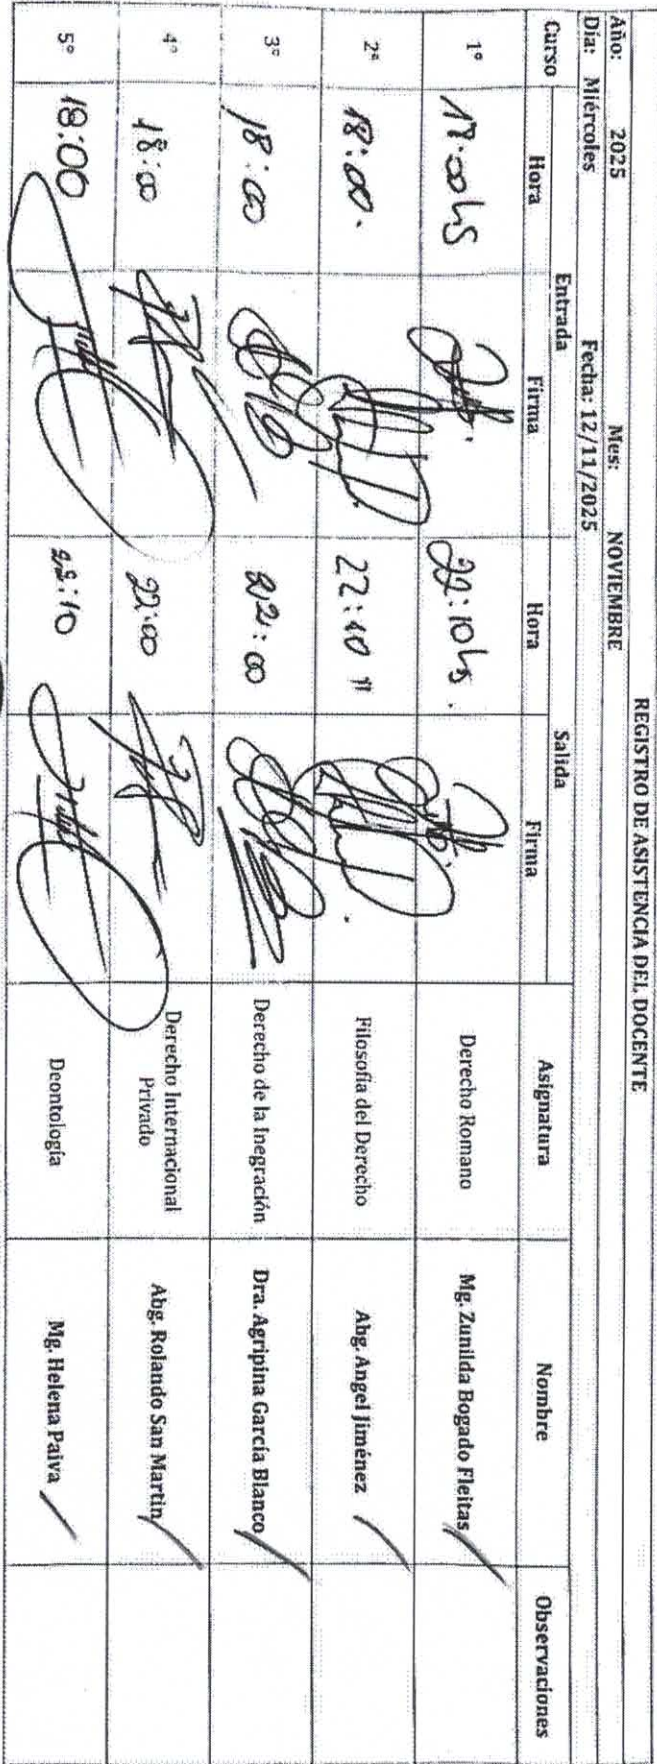 REGISTRO DE ASISTENCIA DEL DOCENTE
Año: 2025 Mes: NOVIEMBRE
Día: Miércoles Fecha: 12/11/2025
Curso Entrada Salida Asignatura Nombre Observaciones
Hora Firma Hora Firma
1° 17:00hs 22:10hs. Derecho Romano Mg. Zunilda Bogado Fleitas
2° 18:00. 22:10 " Filosofía del Derecho Abg. Angel Jiménez
3° 18:00 22:00 Derecho de la Inegración Dra. Agripina García Blanco
4° 18:00 22:00 Derecho Internacional Privado Abg. Rolando San Martin
5° 18:00 22:10 Deontología Mg. Helena Paiva